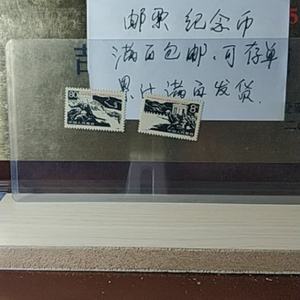 邮票 纪念币
满百包邮.可存单
累计满百发货.
吉
80
8